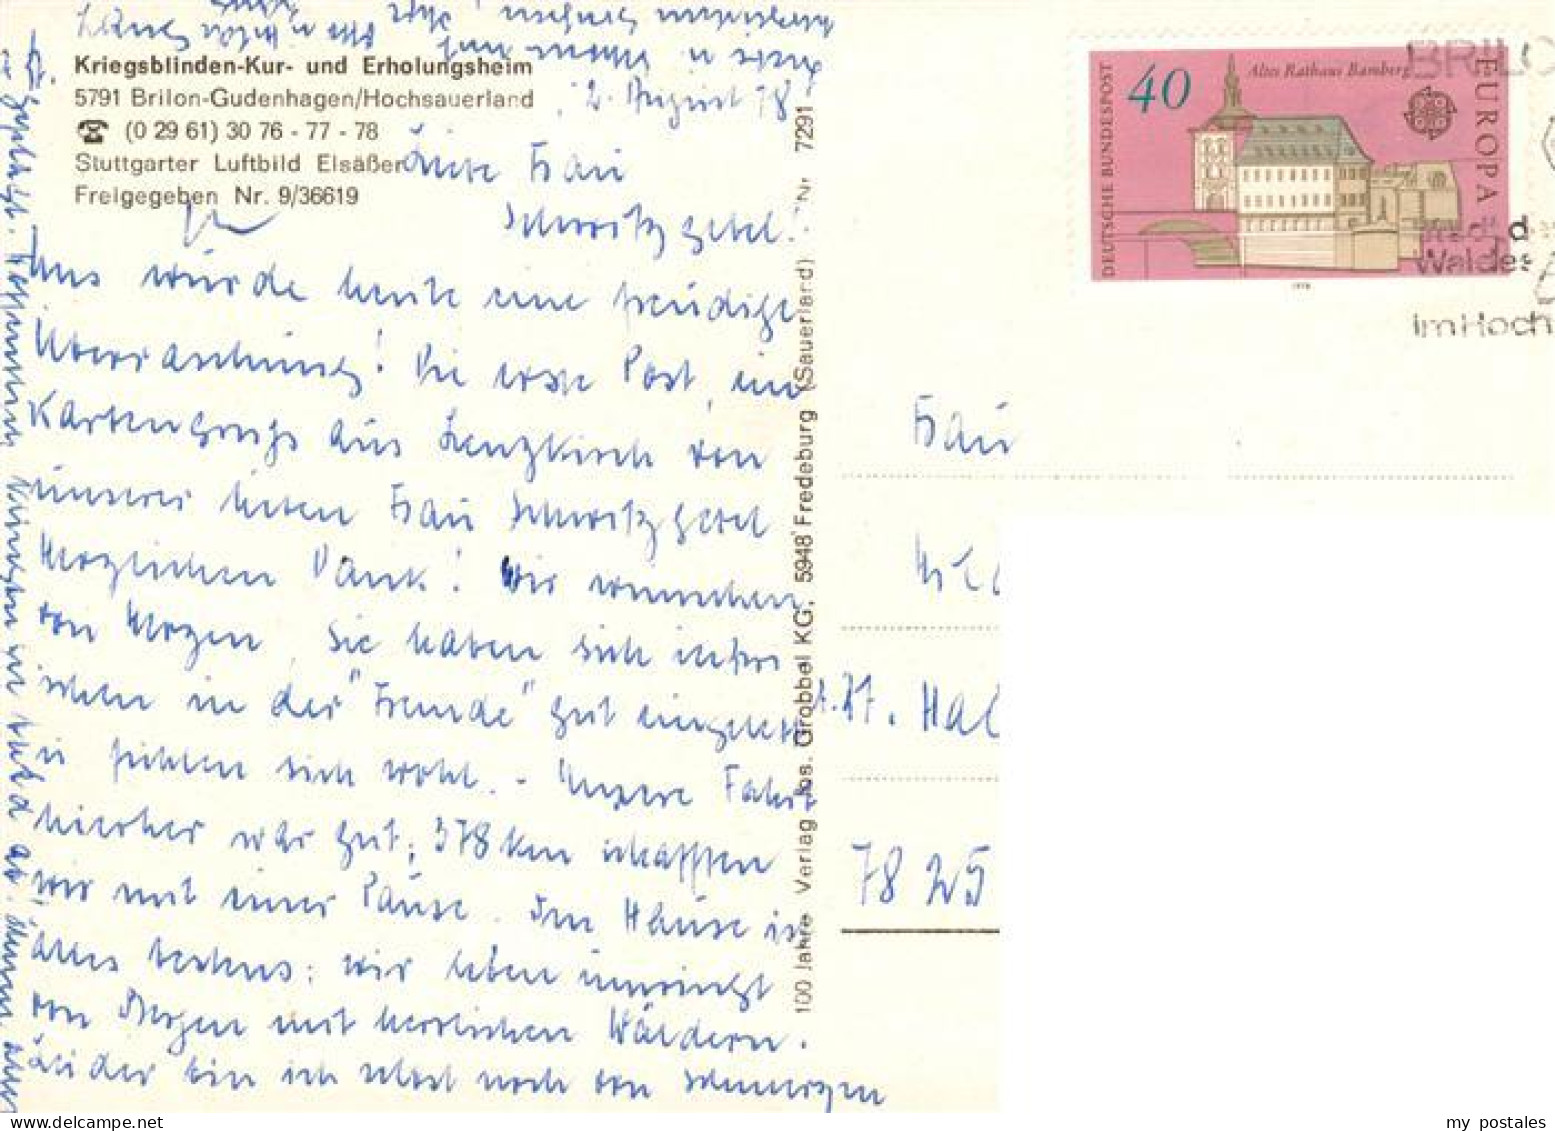 Kriegsblinden-Kur- und Erholungsheim
5791 Brilon-Gudenhagen/Hochsauerland
☎ (0 29 61) 30 76 - 77 - 78
Stuttgarter Luftbild Elsäßer
Freigegeben Nr. 9/36619
2. August 78
Liebe Frau
Schwitzgebel!
Uns würde heute eine freudige
Überraschung! Die erste Post, ein
Kartengruß aus Lenzkirch von
unserer lieben Frau Schwitzgebel
Herzlichen Dank! Wir wünschen
von Herzen, Sie haben sich inzwi
schen in der "Fremde" gut eingelebt
u. fühlen sich wohl. - Unsere Fahrt
hierher war gut; 378 km schafften
wir mit einer Pause. Im Hause ist
alles bestens; wir leben umringt
von Bergen mit herrlichen Wäldern.
Leider bin ich selbst noch von Schmerzen
geplagt. Hoffentlich klingen sie bald ab.
100 Jahre Verlag Jos. Grobbel KG, 5948 Fredeburg (Sauerland) Nr 7291
DEUTSCHE BUNDESPOST
40
Altes Rathaus Bamberg
EUROPA
1978
BRILO
Waldes
im Hoch
Frau
7825
my postales